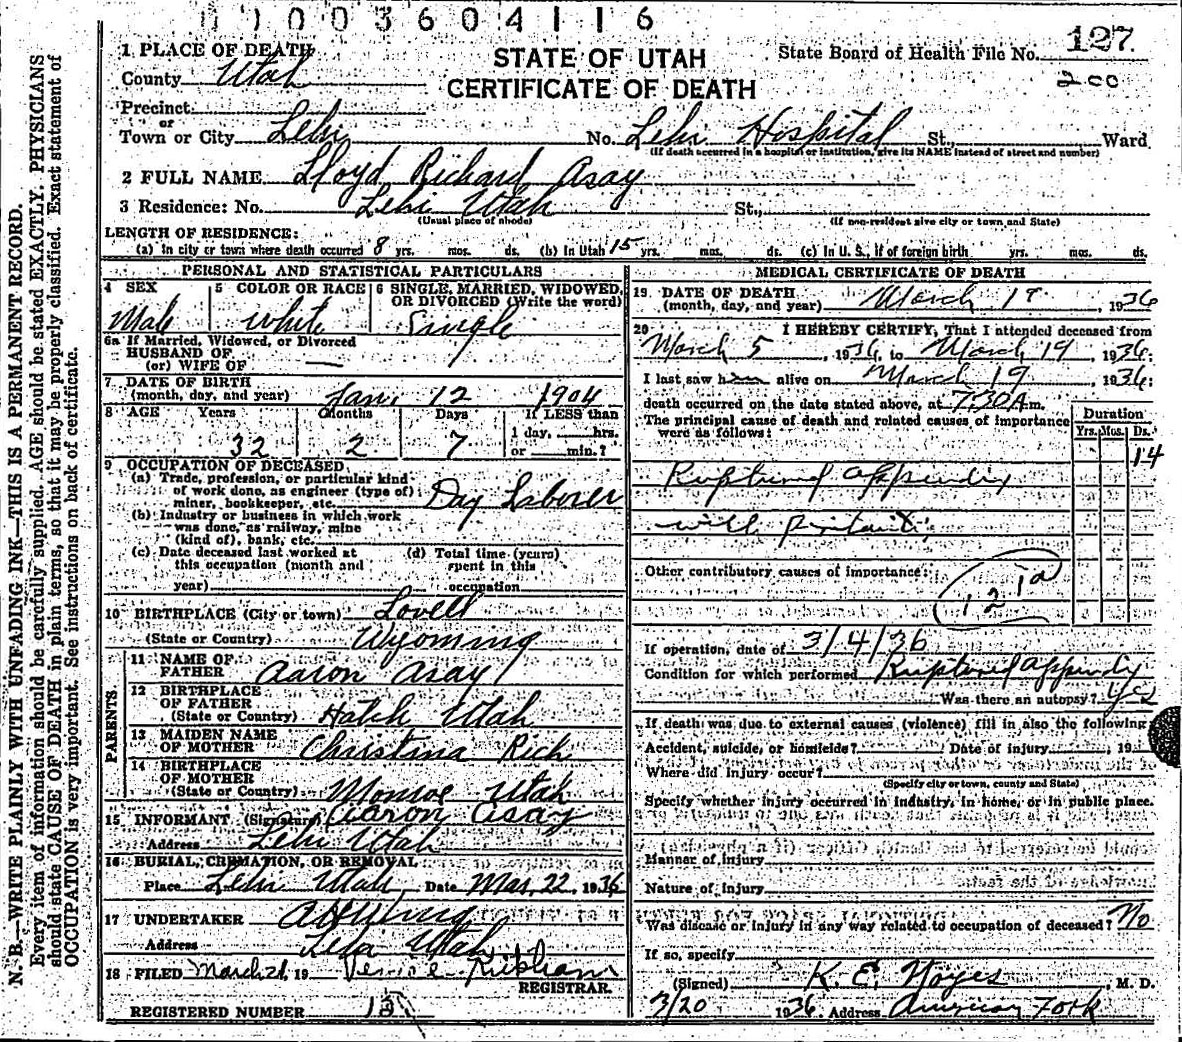 003604116
1 PLACE OF DEATH
STATE OF UTAH
CERTIFICATE OF DEATH
State Board of Health File No. 127
200
County Utah
Precinct
or
Town or City Lehi No. Lehi Hospital St., Ward
(If death occurred in a hospital or institution, give its NAME instead of street and number)
2 FULL NAME Lloyd Richard Asay
3 Residence: No. Lehi Utah St.,
(Usual place of abode) (If non-resident give city or town, and State)
LENGTH OF RESIDENCE:
(a) In city or town where death occurred 8 yrs. mos. ds. (b) In Utah 15 yrs. mos. ds. (c) In U. S., if of foreign birth yrs. mos. ds.
PERSONAL AND STATISTICAL PARTICULARS
4 SEX 5 COLOR OR RACE 6 SINGLE, MARRIED, WIDOWED, OR DIVORCED (Write the word)
Male White Single
6a If Married, Widowed, or Divorced
HUSBAND OF
(or) WIFE OF —
7 DATE OF BIRTH
(month, day, and year) Jan. 12 1904
8 AGE Years Months Days If LESS than
32 2 7 1 day, hrs.
or min.?
9 OCCUPATION OF DECEASED
(a) Trade, profession, or particular kind
of work done, as engineer (type of)
miner, bookkeeper, etc. Day Laborer
(b) Industry or business in which work
was done, as railway, mine
(kind of), bank, etc.
(c) Date deceased last worked at (d) Total time (years)
this occupation (month and spent in this
year) occupation
10 BIRTHPLACE (City or town) Lovell
(State or Country) Wyoming
PARENTS
11 NAME OF
FATHER Aaron Asay
12 BIRTHPLACE
OF FATHER
(State or Country) Hatch Utah
13 MAIDEN NAME
OF MOTHER Christina Rich
14 BIRTHPLACE
OF MOTHER
(State or Country) Monroe Utah
15 INFORMANT (Signature) Aaron Asay
Address Lehi Utah
16 BURIAL, CREMATION, OR REMOVAL
Place Lehi Utah Date Mar. 22, 1936
17 UNDERTAKER
Address Lehi Utah
18 FILED March 21, 19
REGISTRAR.
REGISTERED NUMBER
MEDICAL CERTIFICATE OF DEATH
19 DATE OF DEATH
(month, day, and year) March 19, 1936
20 I HEREBY CERTIFY, That I attended deceased from
March 5, 1936, to March 19, 1936:
I last saw him alive on March 19, 1936:
death occurred on the date stated above, at 7:30 A m.
The principal cause of death and related causes of importance
were as follows:
Duration
Yrs. Mos. Ds.
14
Ruptured appendix
with
Other contributory causes of importance:
121a
If operation, date of 3/4/36
Condition for which performed Ruptured appendix
Was there an autopsy? yes
If death was due to external causes (violence) fill in also the following:
Accident, suicide, or homicide? Date of injury, 19
Where did injury occur?
(Specify city or town, county and State)
Specify whether injury occurred in industry, in home, or in public place.
Manner of injury
Nature of injury
Was disease or injury in any way related to occupation of deceased? No
If so, specify
(Signed) K. E. Noyes, M. D.
3/20 1936. Address American Fork
N. B.—WRITE PLAINLY WITH UNFADING INK—THIS IS A PERMANENT RECORD.
Every item of information should be carefully supplied. AGE should be stated EXACTLY. PHYSICIANS
should state CAUSE OF DEATH in plain terms, so that it may be properly classified. Exact statement of
OCCUPATION is very important. See instructions on back of certificate.